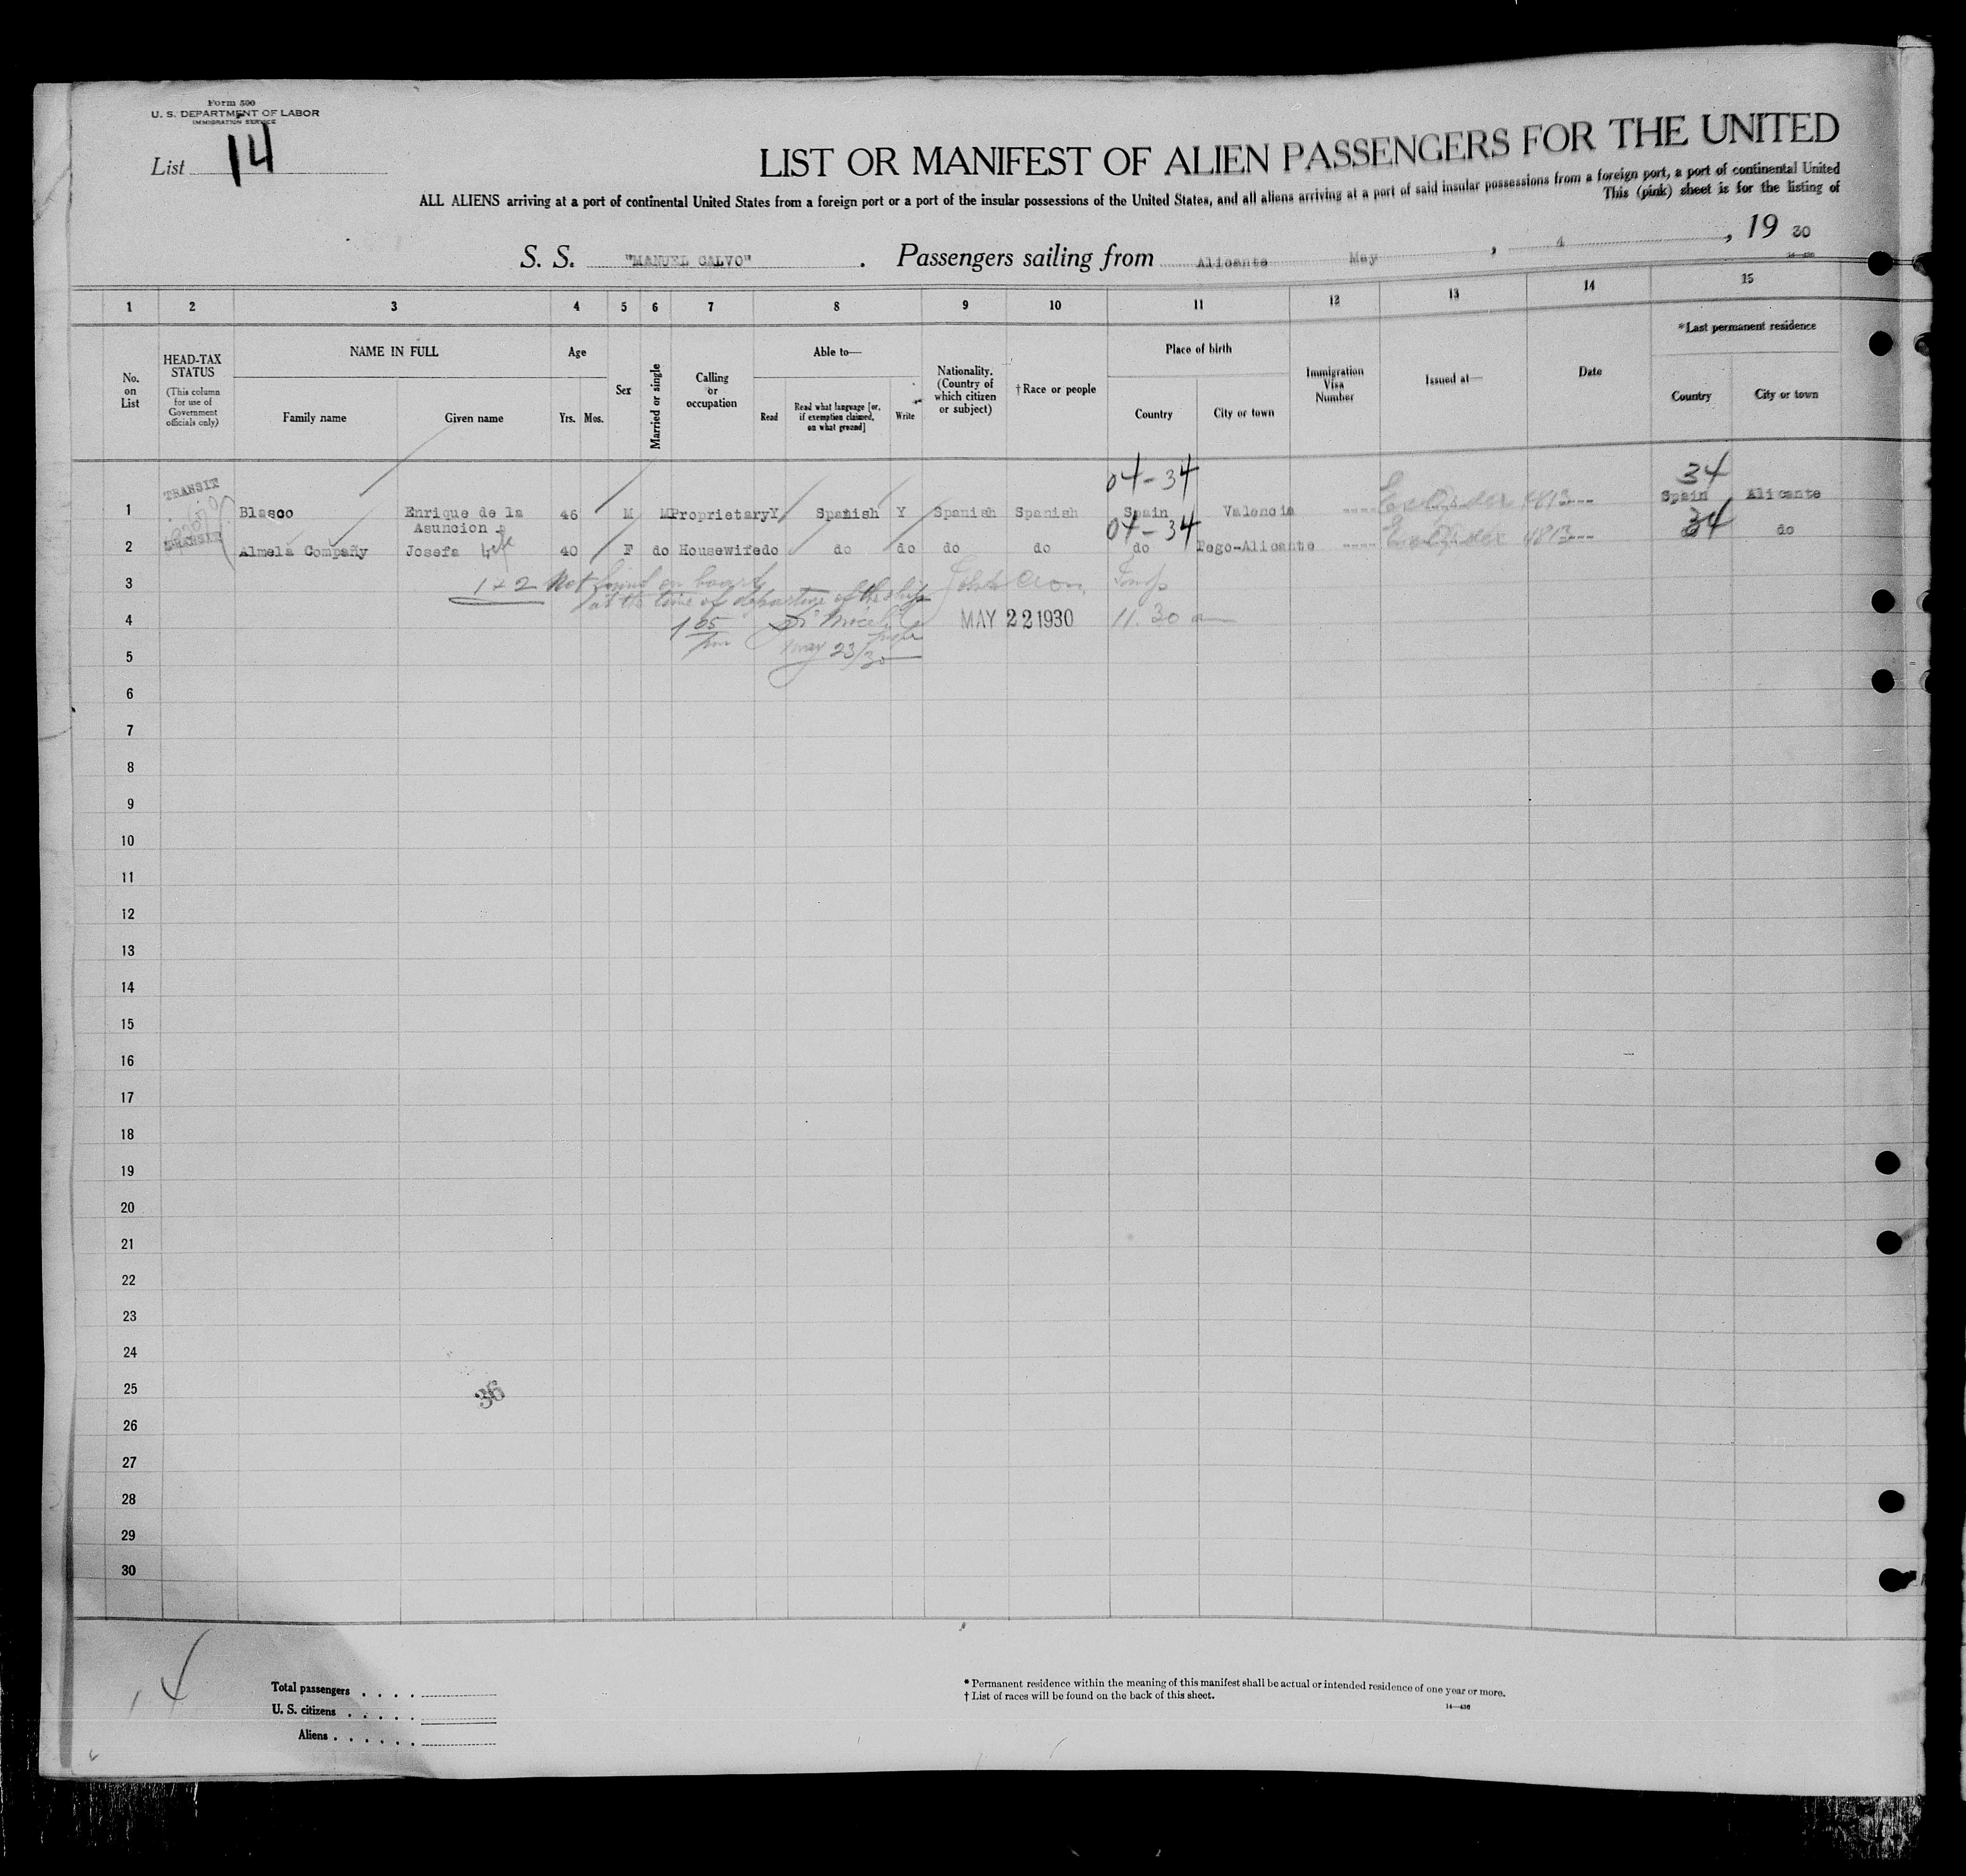 Form 500
U. S. DEPARTMENT OF LABOR
IMMIGRATION SERVICE
List 14
LIST OR MANIFEST OF ALIEN PASSENGERS FOR THE UNITED
ALL ALIENS arriving at a port of continental United States from a foreign port or a port of the insular possessions of the United States, and all aliens arriving at a port of said insular possessions from a foreign port, a port of continental United
This (pink) sheet is for the listing of
S. S. "MANUEL CALVO" . Passengers sailing from Alicante May , 4 , 19 30
1 2 3 4 5 6 7 8 9 10 11 12 13 14 15
No. on List
HEAD-TAX STATUS
(This column for use of Government officials only)
NAME IN FULL
Family name
Given name
Age
Yrs. Mos.
Sex
Married or single
Calling or occupation
Able to—
Read
Read what language [or, if exemption claimed, on what ground]
Write
Nationality. (Country of which citizen or subject)
†Race or people
Place of birth
Country
City or town
Immigration Visa Number
Issued at—
Date
*Last permanent residence
Country
City or town
04-34
34
TRANSIT
1 Blasco Enrique de la Asuncion 46 M M Proprietary Y Spanish Y Spanish Spanish Spain Valencia ---- Ex Order 4813--- Spain Alicante
04-34
34
TRANSIT
2 Almela Compañy Josefa wife 40 F do Housewife do do do do do do Pego-Alicante ---- Ex Order 4813--- do
3 1+2 Not found on board
at the time of departure of the ship
4 1 05 MAY 22 1930 11.30 a
pm
5 May 23/30
6
7
8
9
10
11
12
13
14
15
16
17
18
19
20
21
22
23
24
25
36
26
27
28
29
30
Total passengers . . . .
U. S. citizens . . . . .
Aliens . . . . . .
* Permanent residence within the meaning of this manifest shall be actual or intended residence of one year or more.
† List of races will be found on the back of this sheet.
14—430